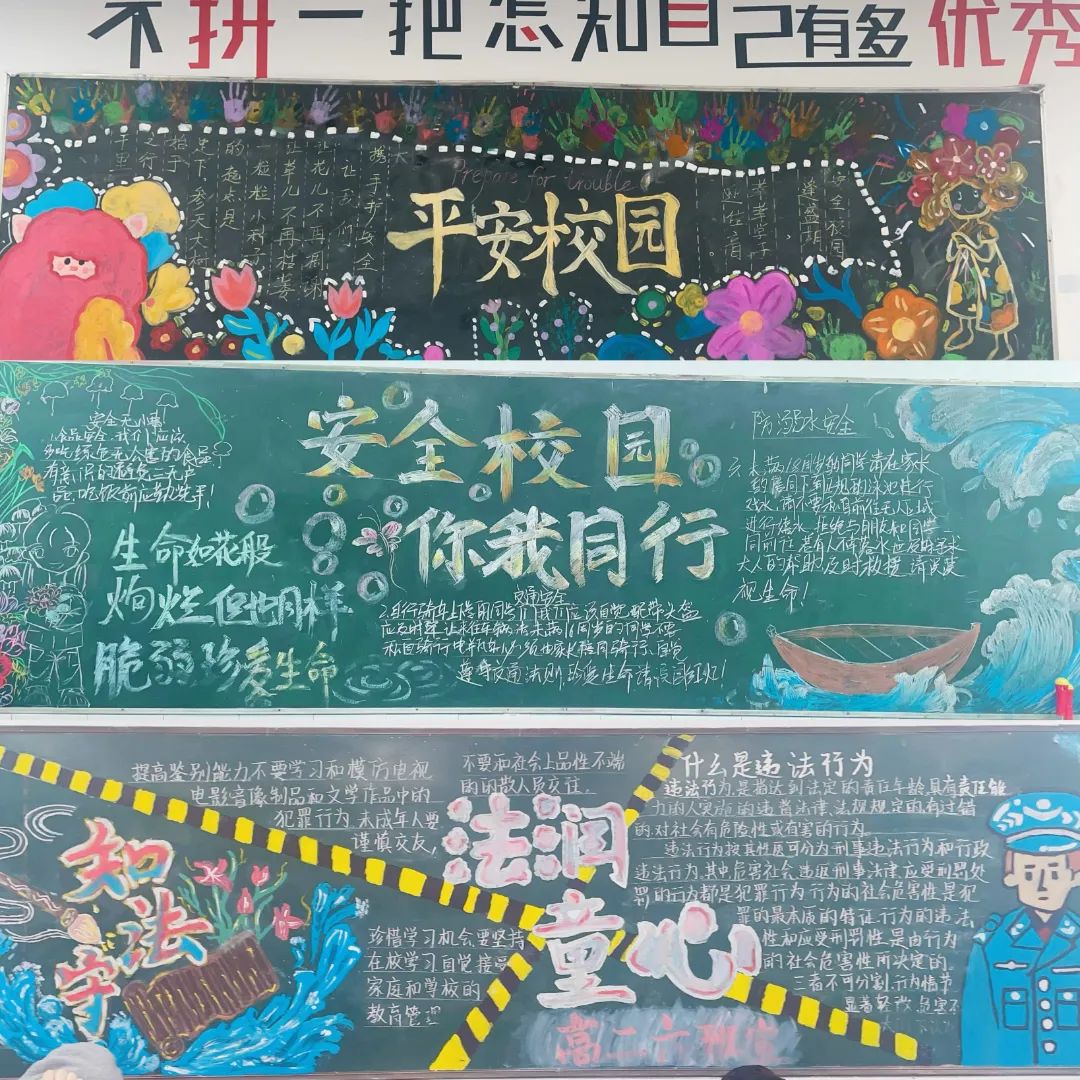 不拼一把怎知自己有多优秀
Prepare for trouble
平安校园
携手护安全
让我们
让花儿不再凋谢
让草儿不再枯萎
一粒粒小种子
的起点是
参天大树
千里
之行
始于
足下
安全校园
莘莘学子
安全无小事
1.食品安全.我们应该
多吃绿色无公害的食品
有意识的避免三无产
品,吃饭前应勤洗手!
生命如花般
绚烂但也同样
脆弱珍爱生命
安全校园
你我同行
交通安全
2.自行骑车上降用同学们我们应该自觉配带头盔
遵守交通法则,珍爱生命请
防溺水安全
3.未满18周岁的同学请在家长
的陪同下到正规的泳池进行
戏水,请不要私自前往无人区域
进行游水,拒绝与朋友和同学
同前往,若有人
大人的帮助及时救援,请
视生命!
提高鉴别能力不要学习和模仿电视
电影音像制品和文学作品中的
犯罪行为,未成年人要
谨慎交友,
不要和社会上品性不端
的闲散人员交往.
知法
守
法润
童心
珍惜学习机会要坚持
在校学习自觉接受
家庭和学校的
教育管理
高二六班宣
什么是违法行为
违法行为,是指达到法定的责任年龄,具有责任能
力的人实施的违背法律,法规规定的有过错
的对社会有危险性或有害的行为。
违法行为按其性质可分为刑事违法行为和行政
违法行为,其中危害社会,违返刑事法律,应受刑罚处
罚的行为都是犯罪行为.行为的社会危害性是犯
罪的最本质的特征,行为的违法
性和应受刑罚性,是由行为
的社会危害性所决定的.
三者不可分割,行为情节
显著轻微,危害不